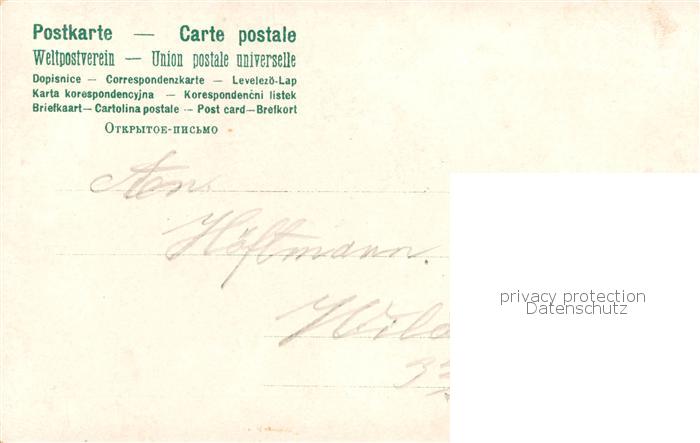 Postkarte — Carte postale
Weltpostverein — Union postale universelle
Dopisnice — Correspondenzkarte — Levelező-Lap
Karta korespondencyjna — Korespondenčni listek
Briefkaart — Cartolina postale — Post card — Brefkort
Открытое-письмо
Höftmann.
Wild
privacy protection
Datenschutz